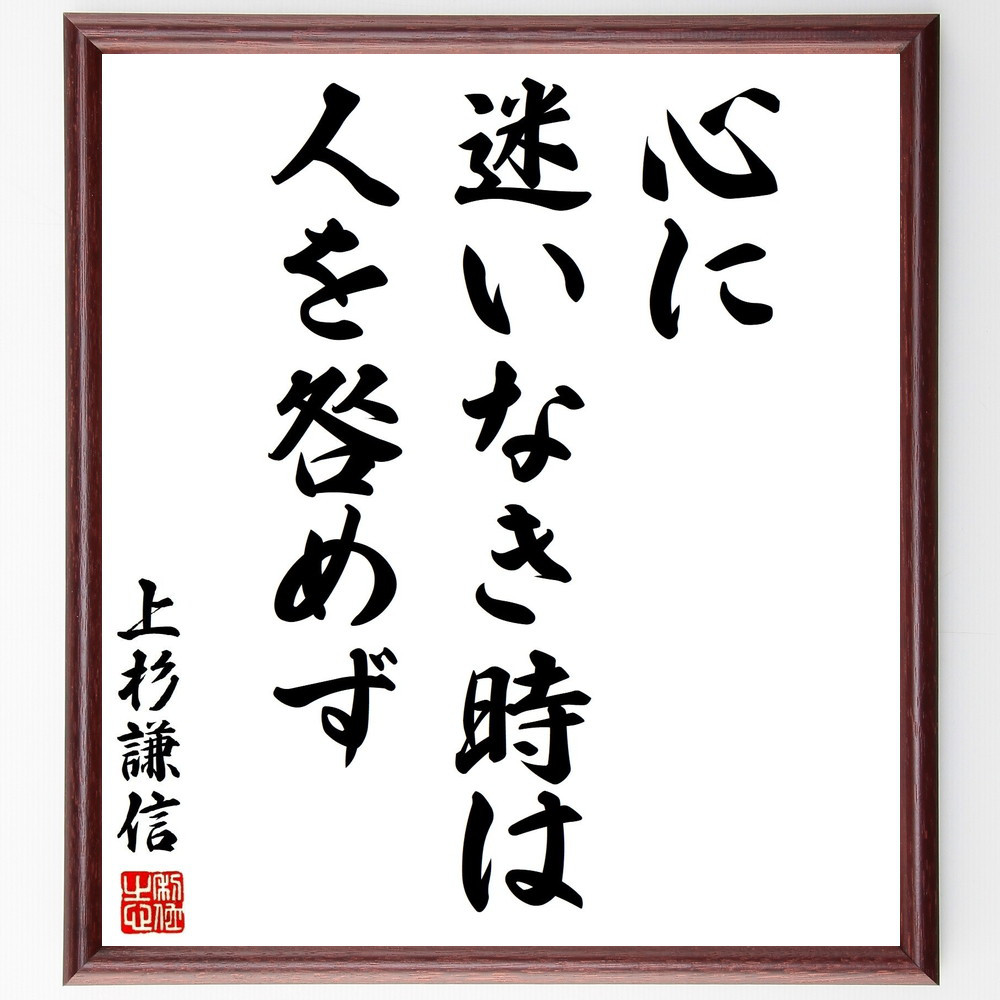 心に
迷いなき時は
人を咎めず
上杉謙信